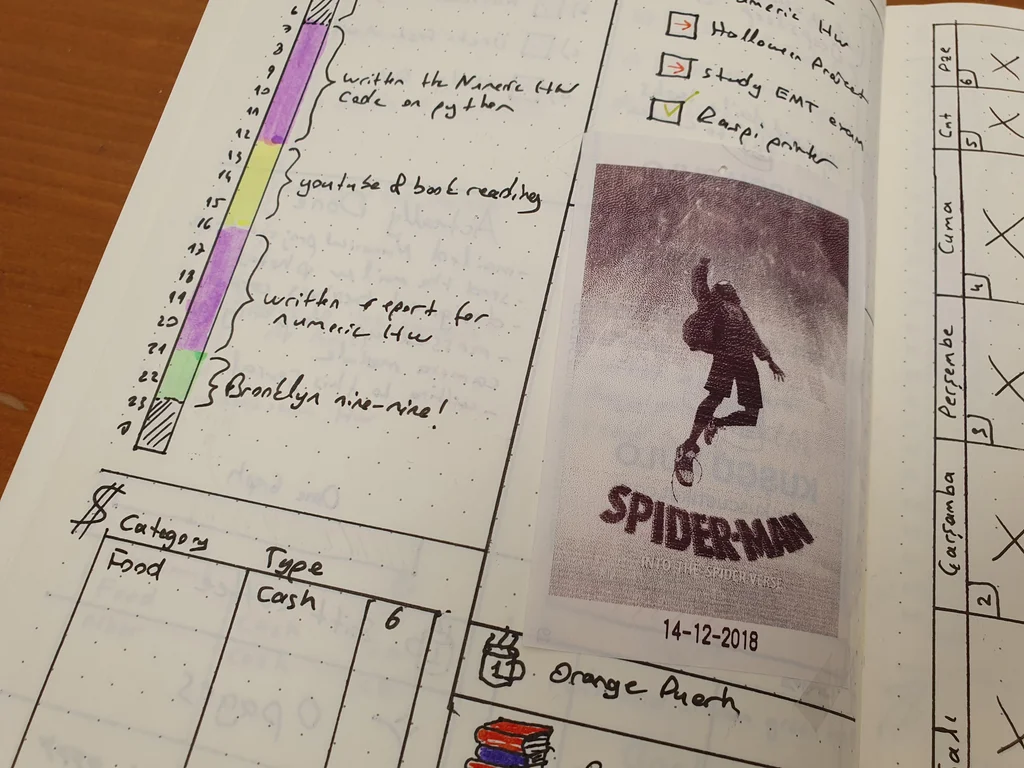 6
7
8
9
10
11
12
13
14
15
16
17
18
19
20
21
22
23
0
written the Numeric HW
code on python
youtube & book reading
written report for
numeric HW
Brooklyn nine-nine!
$
Category Type
Food Cash 6
Numeric HW
Halloween Project
study EMT exam
Raspi printer
SPIDER-MAN
INTO THE SPIDER-VERSE
14-12-2018
1 Orange Puerh
Pze
6
Cnt
5
Cuma
4
Perşembe
3
Çarşamba
2